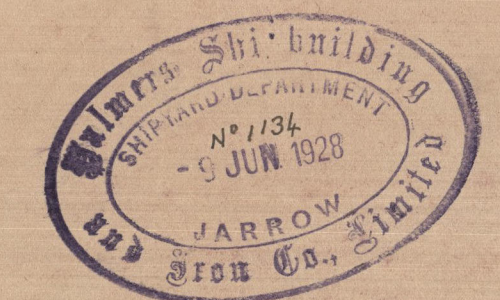 Palmers Shipbuilding
and Iron Co., Limited
SHIPYARD DEPARTMENT
Nº 1134
- 9 JUN 1928
JARROW